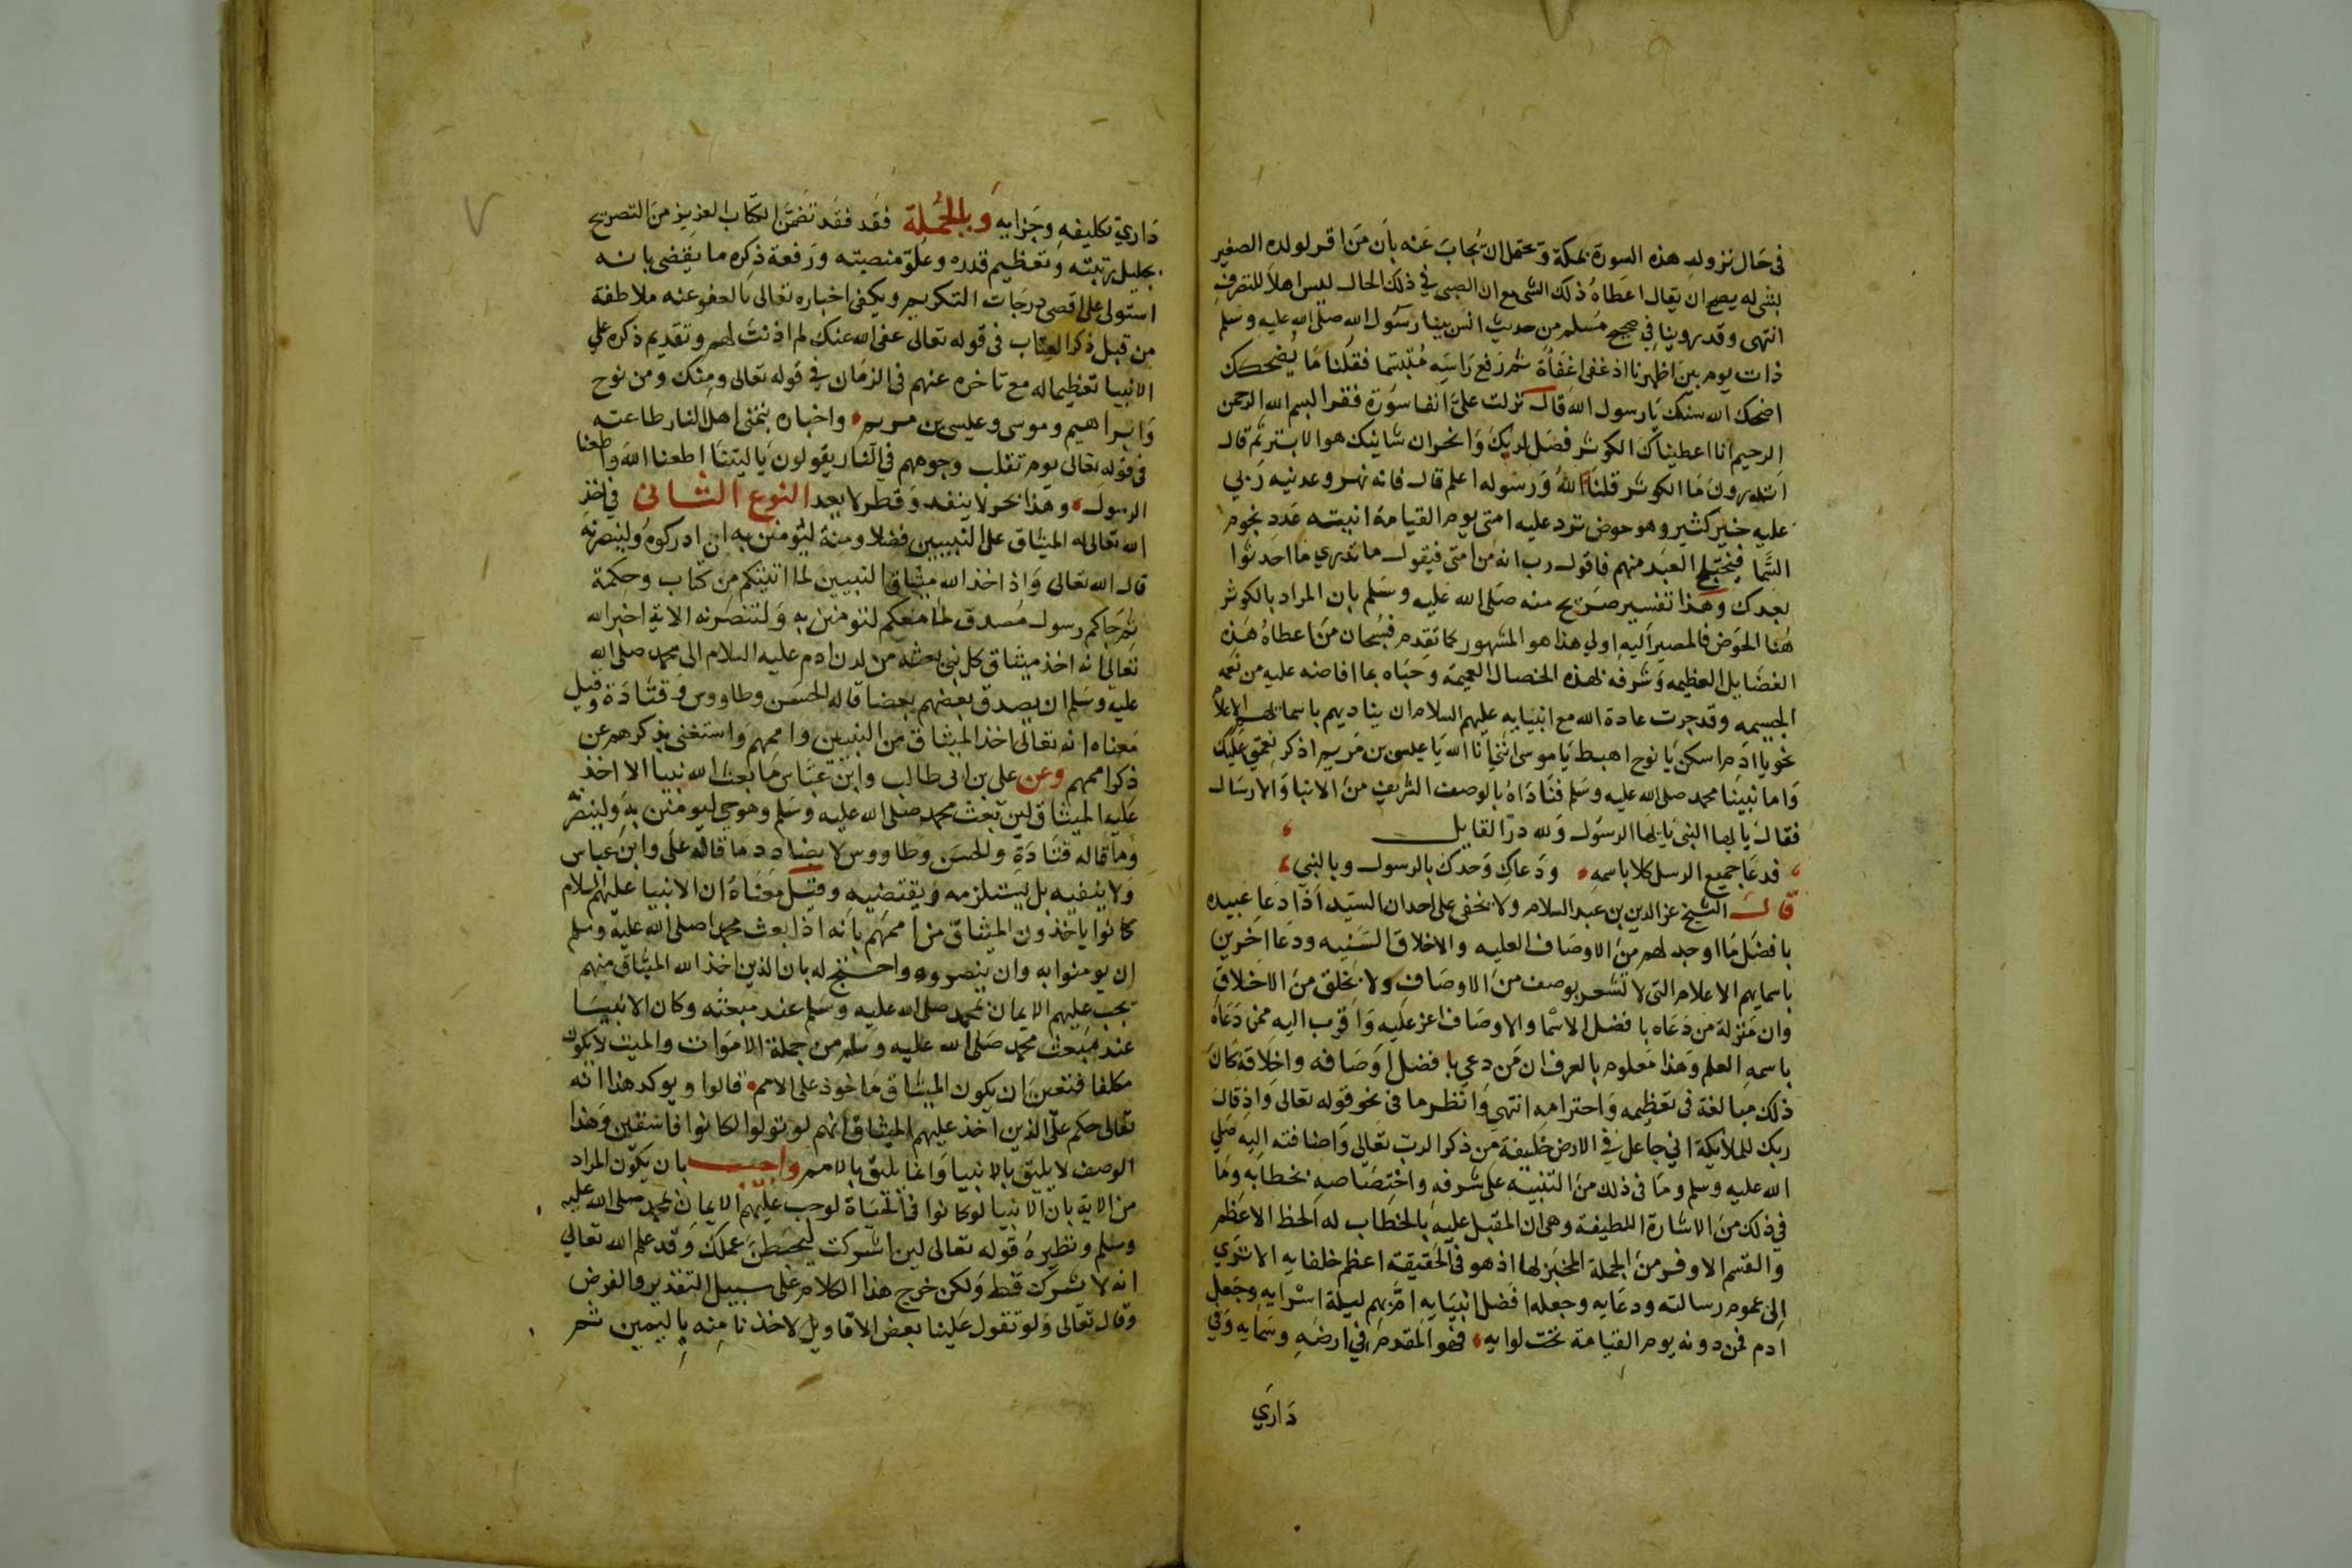 في حال نزوله هذه السورة بمكة ويحتمل ان يجاب عنه بان من اقر لولده الصغير
بشي له يصح ان يقال اعطاه ذلك الشي مع ان الصبي في ذلك الحال ليس اهلا للتصرف
انتهى وقد روينا في صحيح مسلم من حديث انس بينا رسول الله صلى الله عليه وسلم
ذات يوم بين اظهرنا اذ غفى اغفاة ثم رفع راسه مبتسما فقلنا ما يضحكك
اضحك الله سنك يا رسول الله قال نزلت علي انفا سورة فقرا بسم الله الرحمن
الرحيم انا اعطيناك الكوثر فصل لربك وانحر ان شانيك هو الابتر ثم قال
اتدرون ما الكوثر قلنا الله ورسوله اعلم قال فانه نهر وعدنيه ربي
عليه خير كثير وهو حوض ترد عليه امتي يوم القيامة انيته عدد نجوم
السما فيختلج العبد منهم فاقول رب انه من امتي فيقول ما تدري ما احدثوا
بعدك وهذا تفسير صريح منه صلى الله عليه وسلم بان المراد بالكوثر
هنا الحوض فالمصير اليه اولي هذا هو المشهور كما تقدم فسبحان من اعطاه هذه
الفضايل العظيمه وشرفه بهذه الخصال العميمة وحباه بما افاضه عليه من نعمه
الجسيمه وقد جرت عادة الله مع انبيايه عليهم السلام ان يناديهم باسمائهم الاعلام
نحو يا ادم اسكن يا نوح اهبط يا موسى انني انا الله يا عيسى بن مريم اذكر نعمتي عليك
واما نبينا محمد صلى الله عليه وسلم فناداه بالوصف الشريف من الانبا والارسال
فقال يا ايها النبي يا ايها الرسول ولله در القايل
فدعا جميع الرسل كلا باسمه ودعاك وحدك بالرسول وبالنبي
قال الشيخ عز الدين بن عبد السلام ولا يخفى على احد ان السيد اذا دعا عبيده
بافضل ما اوجد لهم من الاوصاف العليه والاخلاق السنيه ودعا اخرين
باسمايهم الاعلام التي لا تشعر بوصف من الاوصاف ولا بخلق من الاخلاق
وان منزلة من دعاه بافضل الاسما والاوصاف اعز عليه واقرب اليه ممن دعاه
باسمه العلم وهذا معلوم بالعرف ان من دعي بافضل اوصافه واخلاقه كان
ذلك مبالغة في تعظيمه واحترامه انتهى وانظر ما في نحو قوله تعالى واذ قال
ربك للملايكة اني جاعل في الارض خليفة من ذكر الرب تعالى واضافته اليه صلى
الله عليه وسلم وما في ذلك من التنبيه على شرفه واختصاصه بخطابه وما
في ذلك من الاشارة اللطيفة وهي ان المقبل عليه بالخطاب له الحظ الاعظم
والقسم الاوفر من الجملة المخبر لها اذ هو في الحقيقة اعظم خلفايه الا ترى
الى عموم رسالته ودعايه وجعله افضل انبيايه امَّ بهم ليلة اسرايه وجعل
ادم فمن دونه يوم القيامة تحت لوايه فهو المقدم في ارضه وسمايه وفي
داري
داري تكليفه وجزايه وبالجملة فقد فقد تضمن الكتاب العزيز من التصريح
بجليل رتبته وتعظيم قدره وعلو منصبه ورفعة ذكره ما يقضي بانه
استولى على اقصى درجات التكريم ويكفي اخباره تعالى بالعفو عنه ملاطفة
من قبل ذكر العتاب في قوله تعالى عفى الله عنك لم اذنت لهم وتقديم ذكره على
الانبيا تعظيما له مع تاخره عنهم في الزمان في قوله تعالى ومنك ومن نوح
وابراهيم وموسى وعيسى بن مريم واخباره بتمني اهل النار طاعته
في قوله تعالى يوم تقلب وجوههم في النار يقولون يا ليتنا اطعنا الله واطعنا
الرسول وهذا بحر لا ينفد وقطر لا يعد النوع الثاني في اخذ
الله تعالى له الميثاق على النبيين فضلا ومنة ليؤمنن به ان ادركوه ولينصرنه
قال الله تعالى واذ اخذ الله ميثاق النبيين لما اتيتكم من كتاب وحكمة
ثم جاكم رسول مصدق لما معكم لتومنن به ولتنصرنه الاية اخبر الله
تعالى انه اخذ ميثاق كل نبي بعثه من لدن ادم عليه السلام الى محمد صلى الله
عليه وسلم ان يصدق بعضهم بعضا قاله الحسن وطاووس وقتادة وقيل
معناه انه تعالى اخذ الميثاق من النبيين واممهم واستغنى بذكرهم عن
ذكر اممهم وعن علي بن ابي طالب وابن عباس ما بعث الله نبيا الا اخذ
عليه الميثاق لين بعث محمد صلى الله عليه وسلم وهو حي ليومنن به ولينصرنه
وما قاله قتادة والحسن وطاووس لا يضادد ما قاله علي وابن عباس
ولا ينفيه بل يستلزمه ويقتضيه وقيل معناه ان الانبيا عليهم السلام
كانوا ياخذون الميثاق من اممهم بانه اذا بعث محمد صلى الله عليه وسلم
ان يومنوا به وان ينصروه واحتج له بان الذين اخذ الله الميثاق منهم
يجب عليهم الايمان بمحمد صلى الله عليه وسلم عند مبعثه وكان الانبيا
عند مبعث محمد صلى الله عليه وسلم من جملة الاموات والميت لا يكون
مكلفا فتعين ان يكون الميثاق ماخوذ على الامم قالوا ويوكد هذا انه
تعالى حكم على الذين اخذ عليهم الميثاق انهم لو تولوا لكانوا فاسقين وهذا
الوصف لا يليق بالانبيا وانما يليق بالامم واجيب بان يكون المراد
من الاية بان الانبيا لو كانوا في الحياة لوجب عليهم الايمان بمحمد صلى الله عليه
وسلم ونظيره قوله تعالى لين اشركت ليحبطن عملك وقد علم الله تعالى
انه لا يشرك قط ولكن خرج هذا الكلام على سبيل التقدير والفرض
وقال تعالى ولو تقول علينا بعض الاقاويل لاخذنا منه باليمين ثم